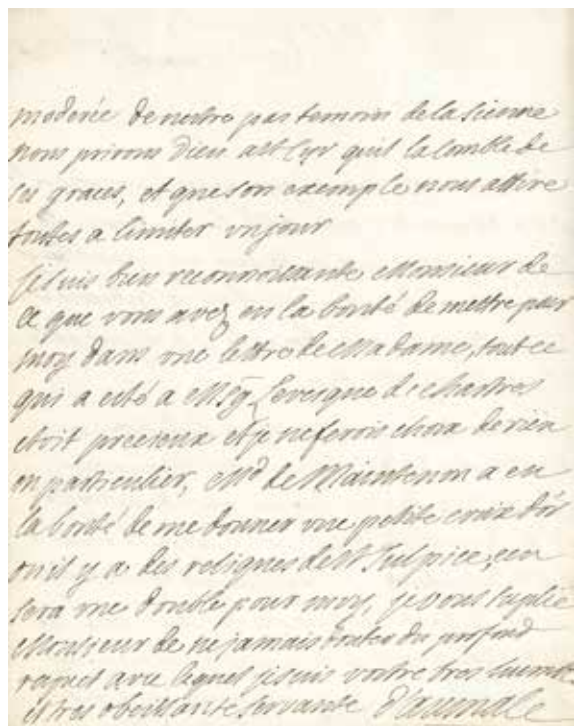 moderée de nestre pas temoin de la sienne
nous prirons dieu a st Cyr quil la comble de
ses graces, et que son exemple nous attire
toutes a limiter un jour
je suis bien reconnoissante Monsieur de
ce que vous avez eu la bonté de mettre pour
moy dans une lettre de Madame, tout ce
qui a esté a Mgr Levesque de chartres
etoit precieux et je neferois choix de rien
en particulier, Md de Maintenon a eu
la bonté de me donner une petite croix dor
ou il y a des reliques de St Sulpice, cen
sera une double pour moy, je vous suplie
Monsieur de ne jamais douter du profond
respect avec lequel je suis vostre tres humble
et tres obeissante servante daumale